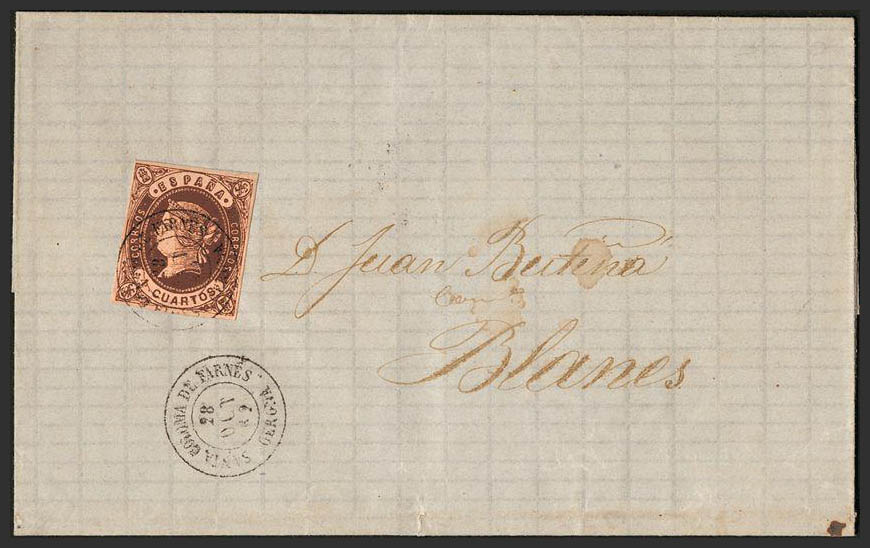 ESPAÑA
CORREOS
CORREOS
4 CUARTOS
FARNÉS
D. Juan Butiñá
Blanes
SANTA COLOMA DE FARNÉS
28
OCT
62
GERONA